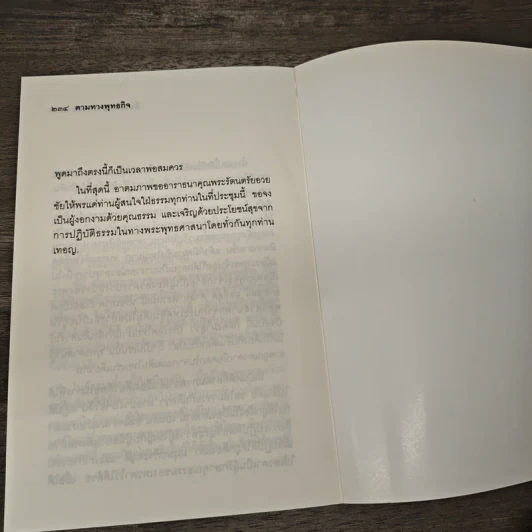 ๒๓๔ ตามทางพุทธกิจ
พูดมาถึงตรงนี้ก็เป็นเวลาพอสมควร
ในที่สุดนี้ อาตมภาพขออาราธนาคุณพระรัตนตรัยอวย
ชัยให้พรแด่ท่านผู้สนใจใฝ่ธรรมทุกท่านในที่ประชุมนี้ ขอจง
เป็นผู้งอกงามด้วยคุณธรรม และเจริญด้วยประโยชน์สุขจาก
การปฏิบัติธรรมในทางพระพุทธศาสนาโดยทั่วกันทุกท่าน
เทอญ.